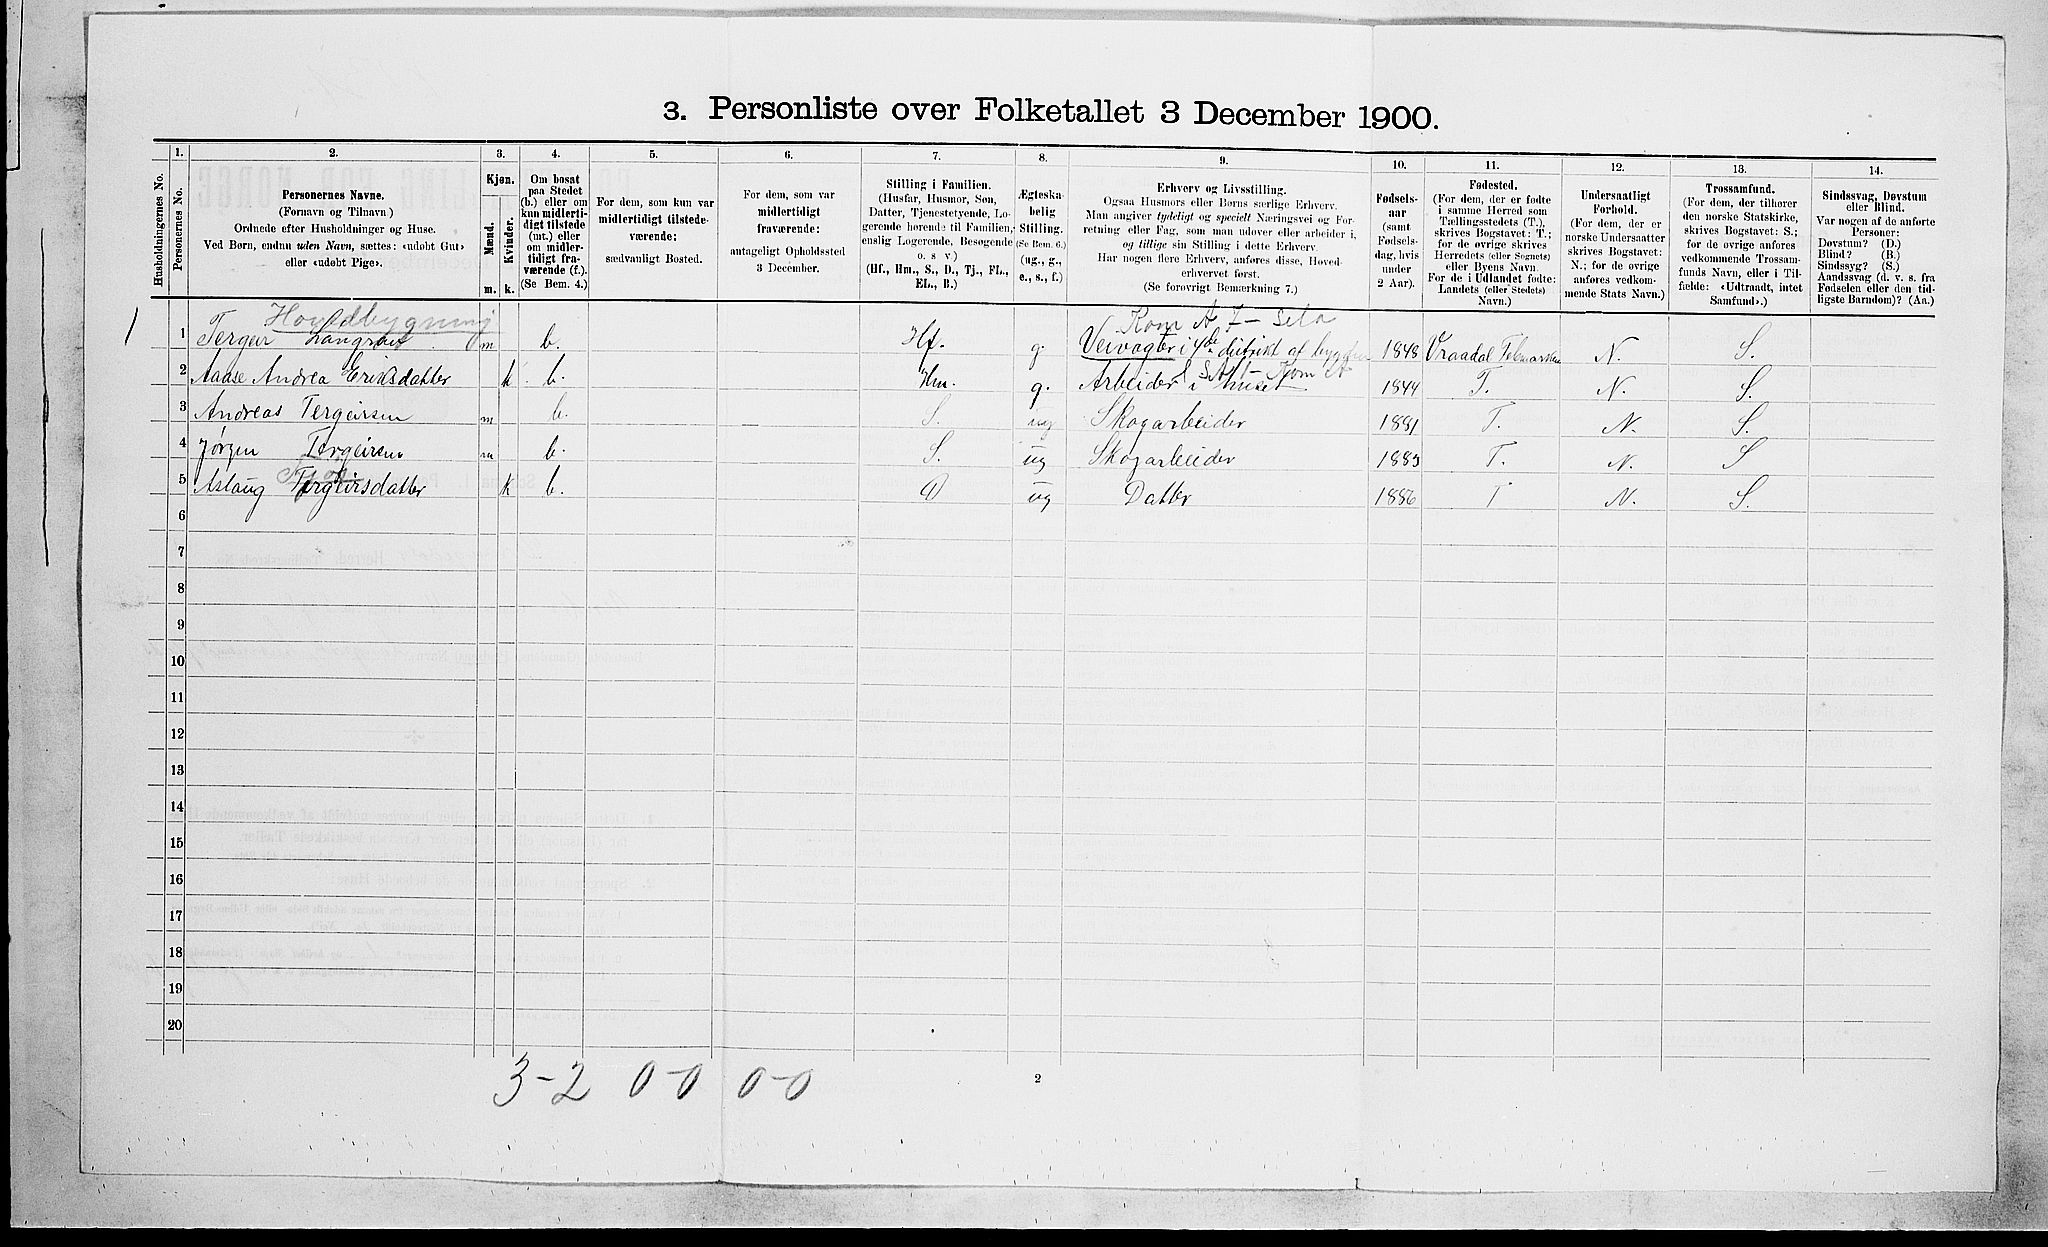 3. Personliste over Folketallet 3 December 1900.
Husholdningernes No.
1.
Personernes No.
2.
Personernes Navne.
(Fornavn og Tilnavn)
Ordnede efter Husholdninger og Huse.
Ved Børn, endnu uden Navn, sættes: «udøbt Gut»
eller «udøbt Pige».
3.
Kjøn.
Mænd.
Kvinder.
m. k.
4.
Om bosat
paa Stedet
(b.) eller om
kun midlerti-
digt tilstede
(mt.) eller
om midler-
tidigt fra-
værende (f.).
(Se Bem. 4.)
5.
For dem, som kun var
midlertidigt tilstede-
værende:
sædvanligt Bosted.
6.
For dem, som var
midlertidigt
fraværende:
antageligt Opholdssted
3 December.
7.
Stilling i Familien.
(Husfar, Husmor, Søn,
Datter, Tjenestetyende, Lo-
gerende hørende til Familien,
enslig Logerende, Besøgende
o. s. v.)
(Hf., Hm., S., D., Tj., FL.,
EL., B.)
8.
Ægteska-
belig
Stilling.
(Se Bem. 6.)
(ug., g.,
e., s., f.)
9.
Erhverv og Livsstilling.
Ogsaa Husmors eller Børns særlige Erhverv.
Man angiver tydeligt og specielt Næringsvei og For-
retning eller Fag, som man udøver eller arbeider i,
og tillige sin Stilling i dette Erhverv.
Har nogen flere Erhverv, anføres disse, Hoved-
erhvervet først.
(Se forøvrigt Bemærkning 7.)
10.
Fødsels-
aar
(samt
Fødsels-
dag, hvis
under
2 Aar).
11.
Fødested.
(For dem, der er fødte
i samme Herred som
Tællingsstedets (T.),
skrives Bogstavet: T.;
for de øvrige skrives
Herredets (eller Sognets)
eller Byens Navn.
For de i Udlandet fødte:
Landets (eller Stedets)
Navn.)
12.
Undersaatligt
Forhold.
(For dem, der er
norske Undersaatter
skrives Bogstavet:
N.; for de øvrige
anføres vedkom-
mende Stats Navn.)
13.
Trossamfund.
(For dem, der tilhører
den norske Statskirke,
skrives Bogstavet: S.;
for de øvrige anføres
vedkommende Trossam-
funds Navn, eller i Til-
fælde: «Udtraadt, intet
Samfund».)
14.
Sindssvag, Døvstum
eller Blind.
Var nogen af de anførte
Personer:
Døvstum? (D.)
Blind? (B.)
Sindssyg? (S.)
Aandssvag (d. v. s. fra
Fødselen eller den tid-
ligste Barndom)? (Aa.)
Hovedbygning
1 1 Tergeir m b. Hf. g. Veivogter i distrikt af 1848 Vraadal Telemarken N. S.
2 Aase Andrea Eriksdatter k b. Hm. g. Arbeider i huset 1844 T. N. S.
3 Andreas Tergeirsen m b. S. ug Skogarbeider 1881 T. N. S.
4 Jørgen Tergeirsen m b. S. ug Skogarbeider 1883 T. N. S
5 Aslaug Tergeirsdatter k b. D ug Datter 1886 T N. S.
6
7
8
9
10
11
12
13
14
15
16
17
18
19
20
3-2 0-0 0-0
2